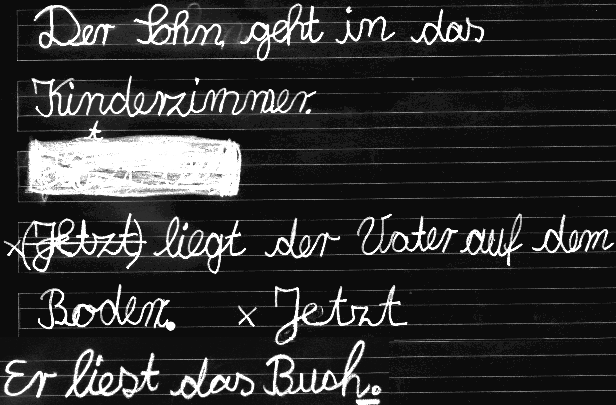 Der Sohn, geht in das
Kinderzimmer.
t
x (Jetzt) liegt der Vater auf dem
Boden. x Jetzt
Er liest das Buch.